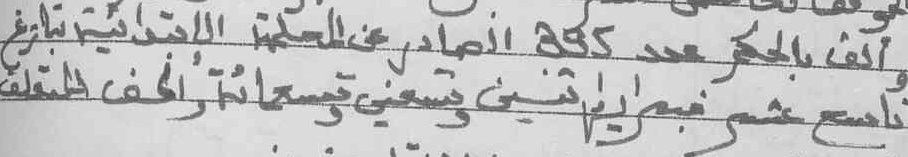 ألف بالحكم عدد 395 الصادر عن المحكمة الابتدائية بتاريخ
تاسع عشر فبراير اثنين وتسعين وتسعمائة وألف المتعلق